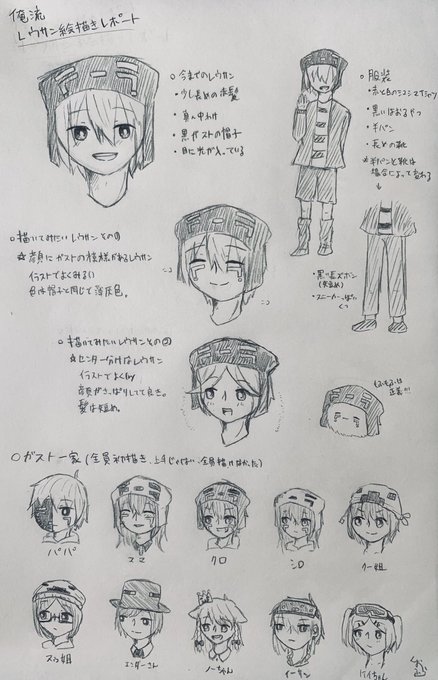 俺流
レウサン絵描きレポート
○今までのレウサン
・少し長めの赤髪
・真ん中わけ
・黒ガストの帽子
・目に光が入っている
○服装
・赤と白のシマシマTシャツ
・黒いはおるやつ
・半パン
・長めの靴
*半パンと靴は
場合によって変わる
・黒い長ズボン
・スニーカーっぽい
くつ
○描いてみたいレウサンその①
☆顔にガストの模様があるレウサン
イラストでよくみる!!
色は帽子と同じで薄灰色。
○描いてみたいレウサンその②
☆センター分けなレウサン
イラストでよくみる
顔がさっぱりしてて良き。
髪は短め。
もふもふは
正義!!!
○ガスト一家(全員初描き、上手じゃない、全員描けなかった)
パパ
ママ
クロ
シロ
クー姐
スゥ姐
エンダーさん
ノーちゃん
イーサン
ケイちゃん